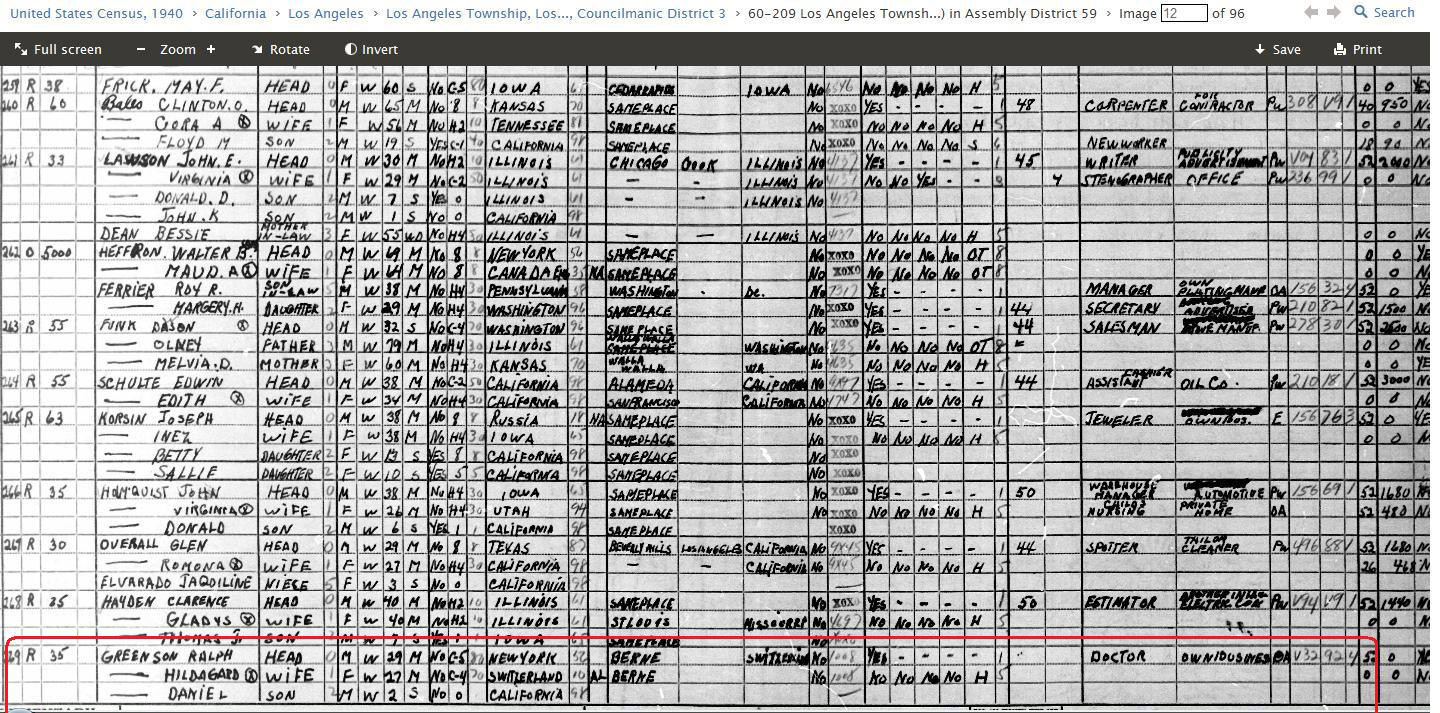 United States Census, 1940 › California › Los Angeles › Los Angeles Township, Los..., Councilmanic District 3 › 60-209 Los Angeles Townsh...) in Assembly District 59 › Image 12 of 96 Search
Full screen − Zoom + Rotate Invert Save Print
259 R 38 FRICK. MAY. F. HEAD 0 F W 60 S No C-5 IOWA CEDAR RAPIDS IOWA No No No No No H 5 0 0 YES
260 R 60 Bales CLINTON. O. HEAD 0 M W 65 M No 8 8 KANSAS SAMEPLACE No XOXO YES - - - - 1 48 CARPENTER FOR CONTRACTOR PW 308 V9 1 40 950 No
— CORA A ⓧ WIFE 1 F W 56 M No H2 10 TENNESSEE 81 SAMEPLACE No XOXO No No No No H 5 0 0 No
— FLOYD M SON 2 M W 19 S YES C-1 CALIFORNIA 98 SAMEPLACE No XOXO No No No No S 6 NEW WORKER 18 90 No
261 R 33 LAWSON JOHN. E. HEAD 0 M W 30 M No H2 ILLINOIS 61 CHICAGO COOK ILLINOIS No 4137 YES - - - - 1 45 WRITER PUBLICITY ADVERTISEMENT PW V04 83 1 52 2000 No
— VIRGINIA ⓧ WIFE 1 F W 29 M No C-2 50 ILLINOIS 61 — — ILLINOIS No 4137 No No YES - 4 STENOGRAPHER OFFICE PW 236 99 1 0 0 No
— DONALD. D. SON 2 M W 7 S YES 0 ILLINOIS 61 — — ILLINOIS No 4137
— JOHN. K SON 2 M W 1 S No 0 CALIFORNIA 98
DEAN BESSIE MOTHER IN-LAW 3 F W 55 WD No H4 30 ILLINOIS 61 — — ILLINOIS No 4137 No No No No H 5 0 0 No
262 O 5000 HEFFRON. WALTER B. HEAD 0 M W 69 M No 8 8 NEW YORK 56 SAMEPLACE No XOXO No No No No OT 8 0 0 YES
— MAUD. A ⓧ WIFE 1 F W 64 M No 8 8 CANADA NA SAMEPLACE No XOXO No No No No OT 8 0 0 No
FERRIER ROY R. SON IN-LAW 5 M W 38 M No H4 30 PENNSYLVANIA 58 WASHINGTON - DC. No 7317 YES - - - - 1 MANAGER OWN OA 156 52 0 YES
— MARGERY. H. DAUGHTER 2 F W 29 M No H4 30 WASHINGTON 96 SAMEPLACE No XOXO YES - - - - 1 44 SECRETARY ADVERTISER PW 210 82 1 52 1500 No
263 R 55 FUNK DASON ⓧ HEAD 0 M W 32 S No C-4 70 WASHINGTON 96 SAME PLACE No XOXO YES - - - - 1 44 SALESMAN PW 278 30 1 52 2600 No
— OLNEY FATHER 3 M W 79 M No H4 30 ILLINOIS 61 WALLA WALLA WASHINGTON No 9635 No No No No OT 8 0 0 No
— MELVIA. D. MOTHER 3 F W 60 M No H4 30 KANSAS 70 WALLA WALLA WA. No 9635 No No No No H 5 0 0 YES
264 R 55 SCHULTE EDWIN HEAD 0 M W 38 M No C-2 50 CALIFORNIA 98 ALAMEDA CALIFORNIA No YES - - - - 1 44 ASSISTANT CASHIER OIL CO. PW 210 18 1 52 3000 No
— EDITH ⓧ WIFE 1 F W 34 M No H4 30 CALIFORNIA 98 SAN FRANCISCO CALIFORNIA No No No No No H 5 0 0 No
265 R 63 KORSIN JOSEPH HEAD 0 M W 38 M No 8 8 RUSSIA 18 NA SAMEPLACE No XOXO YES - - - - 1 JEWELER OWN BUS. E 156 763 52 0 YES
— INEZ WIFE 1 F W 38 M No H4 30 IOWA 65 SAMEPLACE No XOXO No No No No H 5 0 0 No
— BETTY DAUGHTER 2 F W 13 S YES 8 8 CALIFORNIA 98 SAMEPLACE No XOXO
— SALLIE DAUGHTER 2 F W 10 S YES 5 5 CALIFORNIA 98 SAMEPLACE No XOXO
266 R 35 HOLMQUIST JOHN HEAD 0 M W 38 M No H4 30 IOWA 65 SAMEPLACE No XOXO YES - - - - 1 50 WAREHOUSE MANAGER AUTOMOTIVE PW 156 69 1 52 1680 No
— VIRGINIA ⓧ WIFE 1 F W 26 M No H4 30 UTAH 94 SAMEPLACE No XOXO No No No No H 5 CHILDS NURSING PRIVATE HOME OA 52 480 No
— DONALD SON 2 M W 6 S YES 1 1 CALIFORNIA 98 SAMEPLACE XOXO
267 R 30 OVERALL GLEN HEAD 0 M W 29 M No 8 8 TEXAS 87 BEVERLY HILLS LOS ANGELES CALIFORNIA No 9X45 YES - - - - 1 44 SPOTTER TAILOR CLEANER PW 496 88 1 52 1680 No
— ROMONA ⓧ WIFE 1 F W 27 M No H4 30 CALIFORNIA 98 — — CALIFORNIA No 9X45 No No No No H 5 26 468 No
ELVARADO JAQOILINE NIESE 5 F W 3 S No 0 CALIFORNIA 98
268 R 35 HAYDEN CLARENCE HEAD 0 M W 40 M No H2 10 ILLINOIS 61 SAMEPLACE No XOXO YES - - - - 1 50 ESTIMATOR ELECTRIC PW V94 V9 1 52 1440 No
— GLADYS ⓧ WIFE 1 F W 40 M No H2 10 ILLINOIS 61 ST LOUIS MISSOURRI No No No No No H 5 0 0 No
— THOMAS J. SON 2 M W 7 S YES 1 1 IOWA 65 SAMEPLACE No
269 R 35 GREENSON RALPH HEAD 0 M W 29 M No C-5 80 NEW YORK 56 BERNE SWITZERLAND No 1008 YES - - - - 1 DOCTOR OWN BUSINESS OA V32 92 4 52 0 YES
— HILDAGARD ⓧ WIFE 1 F W 27 M No C-4 SWITZERLAND 10 AL BERNE No 1008 No No No No H 5 0 0 No
— DANIEL SON 2 M W 2 S No 0 CALIFORNIA 98